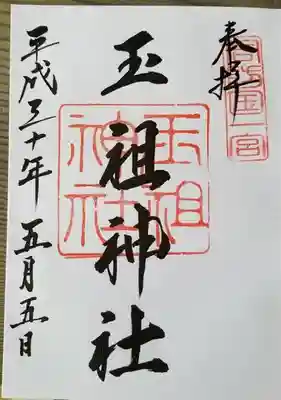 奉拝
周防国一宮
玉祖神社
玉祖神社
平成三十年五月五日